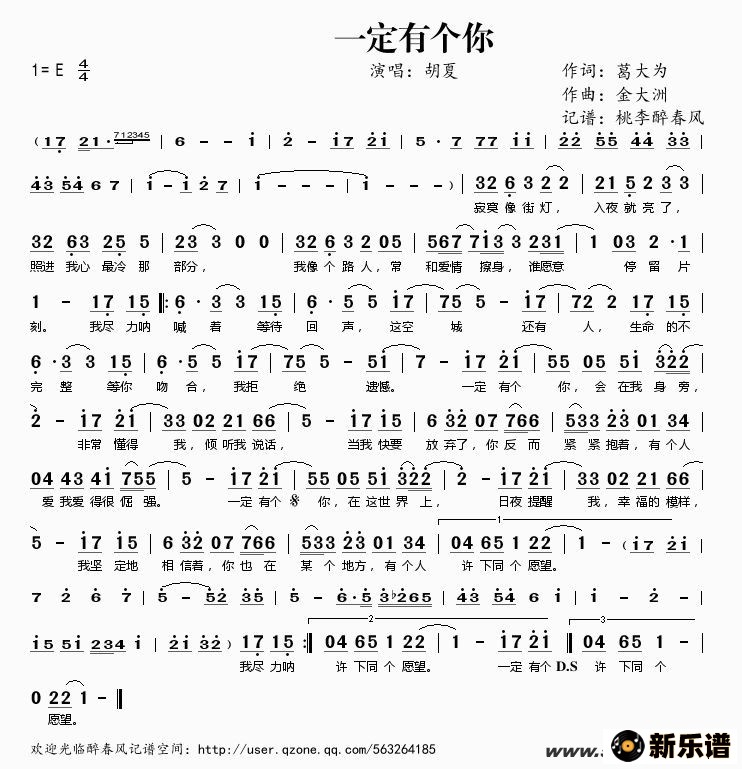 一定有个你
1= E 4/4
演唱: 胡夏
作词: 葛大为
作曲: 金大洲
记谱: 桃李醉春风
( 1 7 2 1 · 7 1 2 3 4 5 | 6 - - i | 2 - - i | 1 7 2 i | 5 · 7 7 7 i i | 2 2 5 5 4 4 3 3 |
4 3 5 4 6 7 | i - i 2 7 | i - - - | i - - - ) | 3 2 6 3 2 2 | 2 1 5 2 3 3 |
寂寞 像 街 灯, 入夜 就 亮 了,
3 2 6 3 2 5 5 | 2 3 3 0 0 | 3 2 6 3 2 0 5 | 5 6 7 7 i 3 3 2 3 1 | 1 0 3 2 · 1 |
照进 我心 最冷 那 部分, 我像 个 路 人, 常 和爱情 擦身, 谁愿意 停 留 片
1 - 1 7 1 5 |: 6 · 3 3 1 5 | 6 · 5 5 i 7 | 7 5 5 - i 7 | 7 2 2 1 7 1 5 |
刻。 我尽 力呐 喊 着 等待 回 声, 这空 城 还有 人, 生命 的不
6 · 3 3 1 5 | 6 · 5 5 i 7 | 7 5 5 - 5 i | 7 - i 7 2 i | 5 5 0 5 5 i 3 2 2 |
完 整 等你 吻 合, 我拒 绝 遗憾。 一定 有个 你, 会 在我 身 旁,
2 - i 7 2 i | 3 3 0 2 2 1 6 6 | 5 - i 7 i 5 | 6 3 2 0 7 7 6 6 | 5 3 3 2 3 0 1 3 4 |
非常 懂得 我, 倾 听我 说话, 当我 快要 放弃了, 你 反 而 紧 紧 抱着, 有 个人
0 4 4 3 4 i 7 5 5 | 5 - i 7 2 i | 5 5 0 5 5 i 3 2 2 | 2 - i 7 2 i | 3 3 0 2 2 1 6 6 |
爱 我爱 得很 倔 强。 一定 有个 𝄋 你, 在 这世 界 上, 日夜 提醒 我, 幸 福的 模样,
5 - i 7 i 5 | 6 3 2 0 7 7 6 6 | 5 3 3 2 3 0 1 3 4 | 0 4 6 5 1 2 2 | 1 - ( i 7 2 i |
1
我坚 定地 相 信着, 你 也 在 某 个 地方, 有 个人 许 下同 个 愿望。
7 2 6 7 | 5 - 5 2 3 5 | 5 - 6 · 5 3 ♭2 6 5 | 5 - - i | i - 2 - |
i 5 5 i 2 3 4 i | 2 i 3 2 ) 1 7 1 5 :| 0 4 6 5 1 2 2 | 1 - i 7 2 i | 0 4 6 5 1 |
2
3
我尽 力呐 许 下同 个 愿望。 一定 有个 D.S 许 下同 个
0 2 2 1 - ‖
愿望。
欢迎光临醉春风记谱空间: http://user.qzone.qq.com/563264185
www.
新乐谱